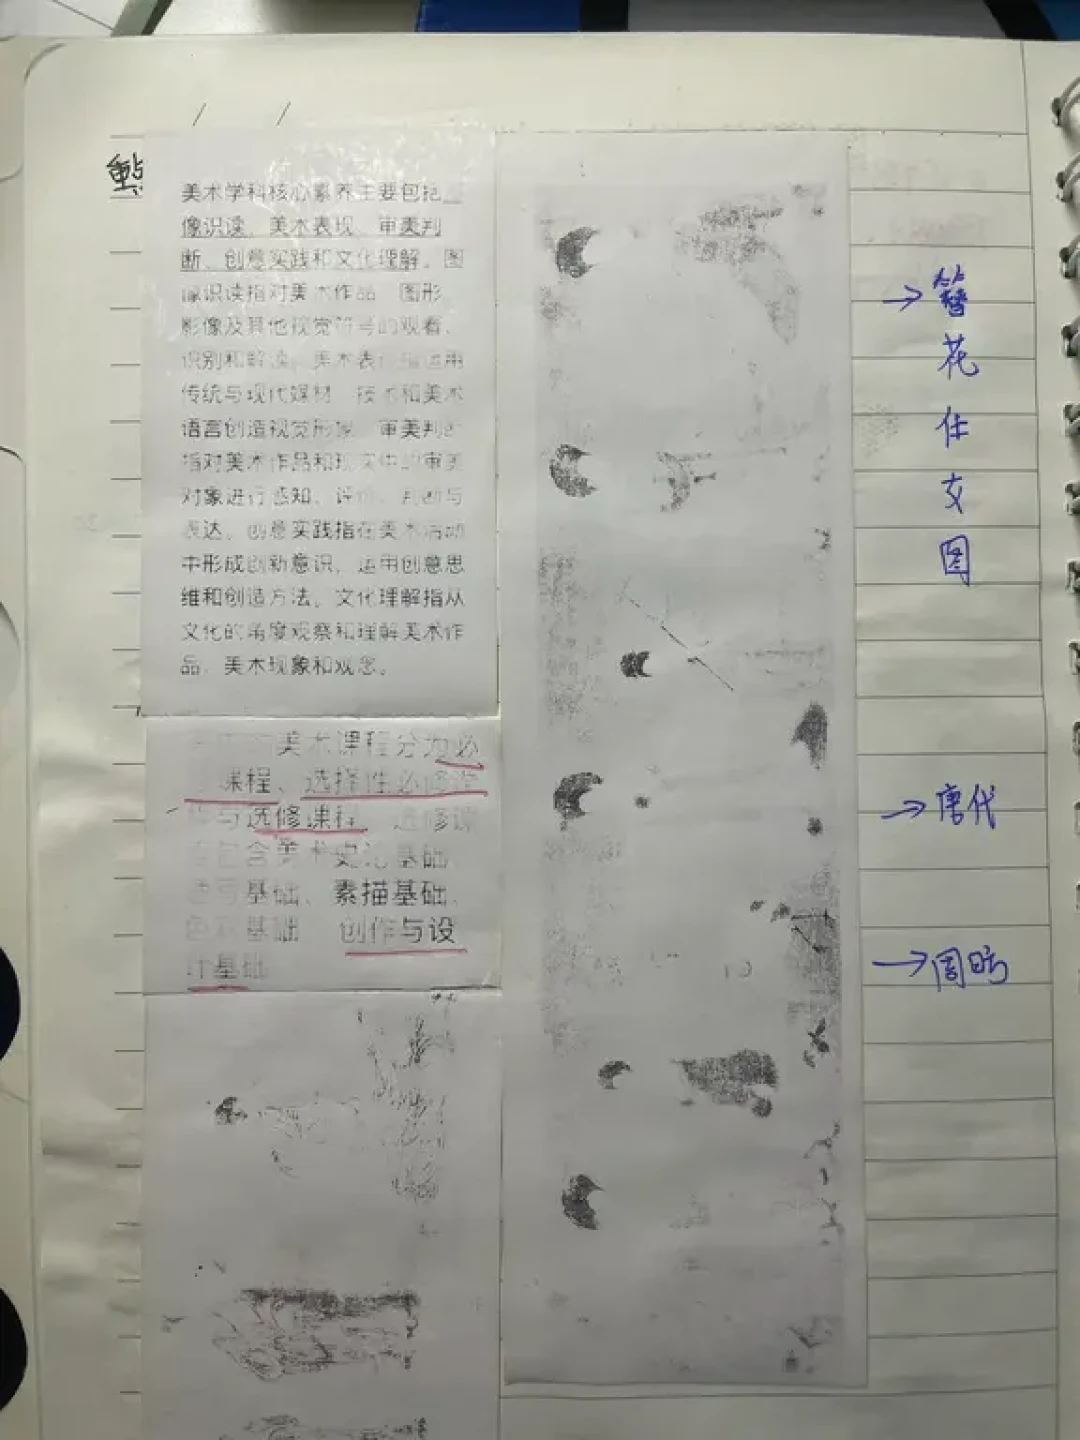 重点
美术学科核心素养主要包括
像识读、美术表现、审美判
断、创意实践和文化理解。图
像识读指对美术作品 图形、
影像及其他视觉符号的观看、
识别和解读。美术表 指运用
传统与现代媒材 技术和美术
语言创造视觉形象。审美判
指对美术作品和现实中的审美
对象进行感知、评价、判断与
表达。创意实践指在美术活动
中形成创新意识，运用创意思
维和创造方法。文化理解指从
文化的角度观察和理解美术作
品、美术现象和观念。
美术课程分为必
课程、选择性必修
与选修课程。选修课
包含美术史论基础、
基础、素描基础、
基础 创作与设
计基础
→簪
花
仕
女
图
→唐代
→周昉